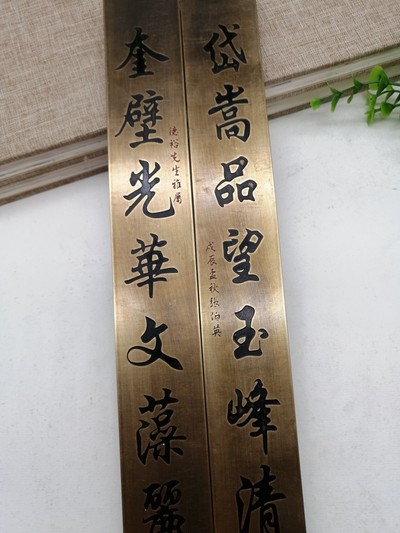 岱嵩品望玉峰清
戊辰孟秋张伯英
奎壁光華文藻麗
德裕先生雅屬